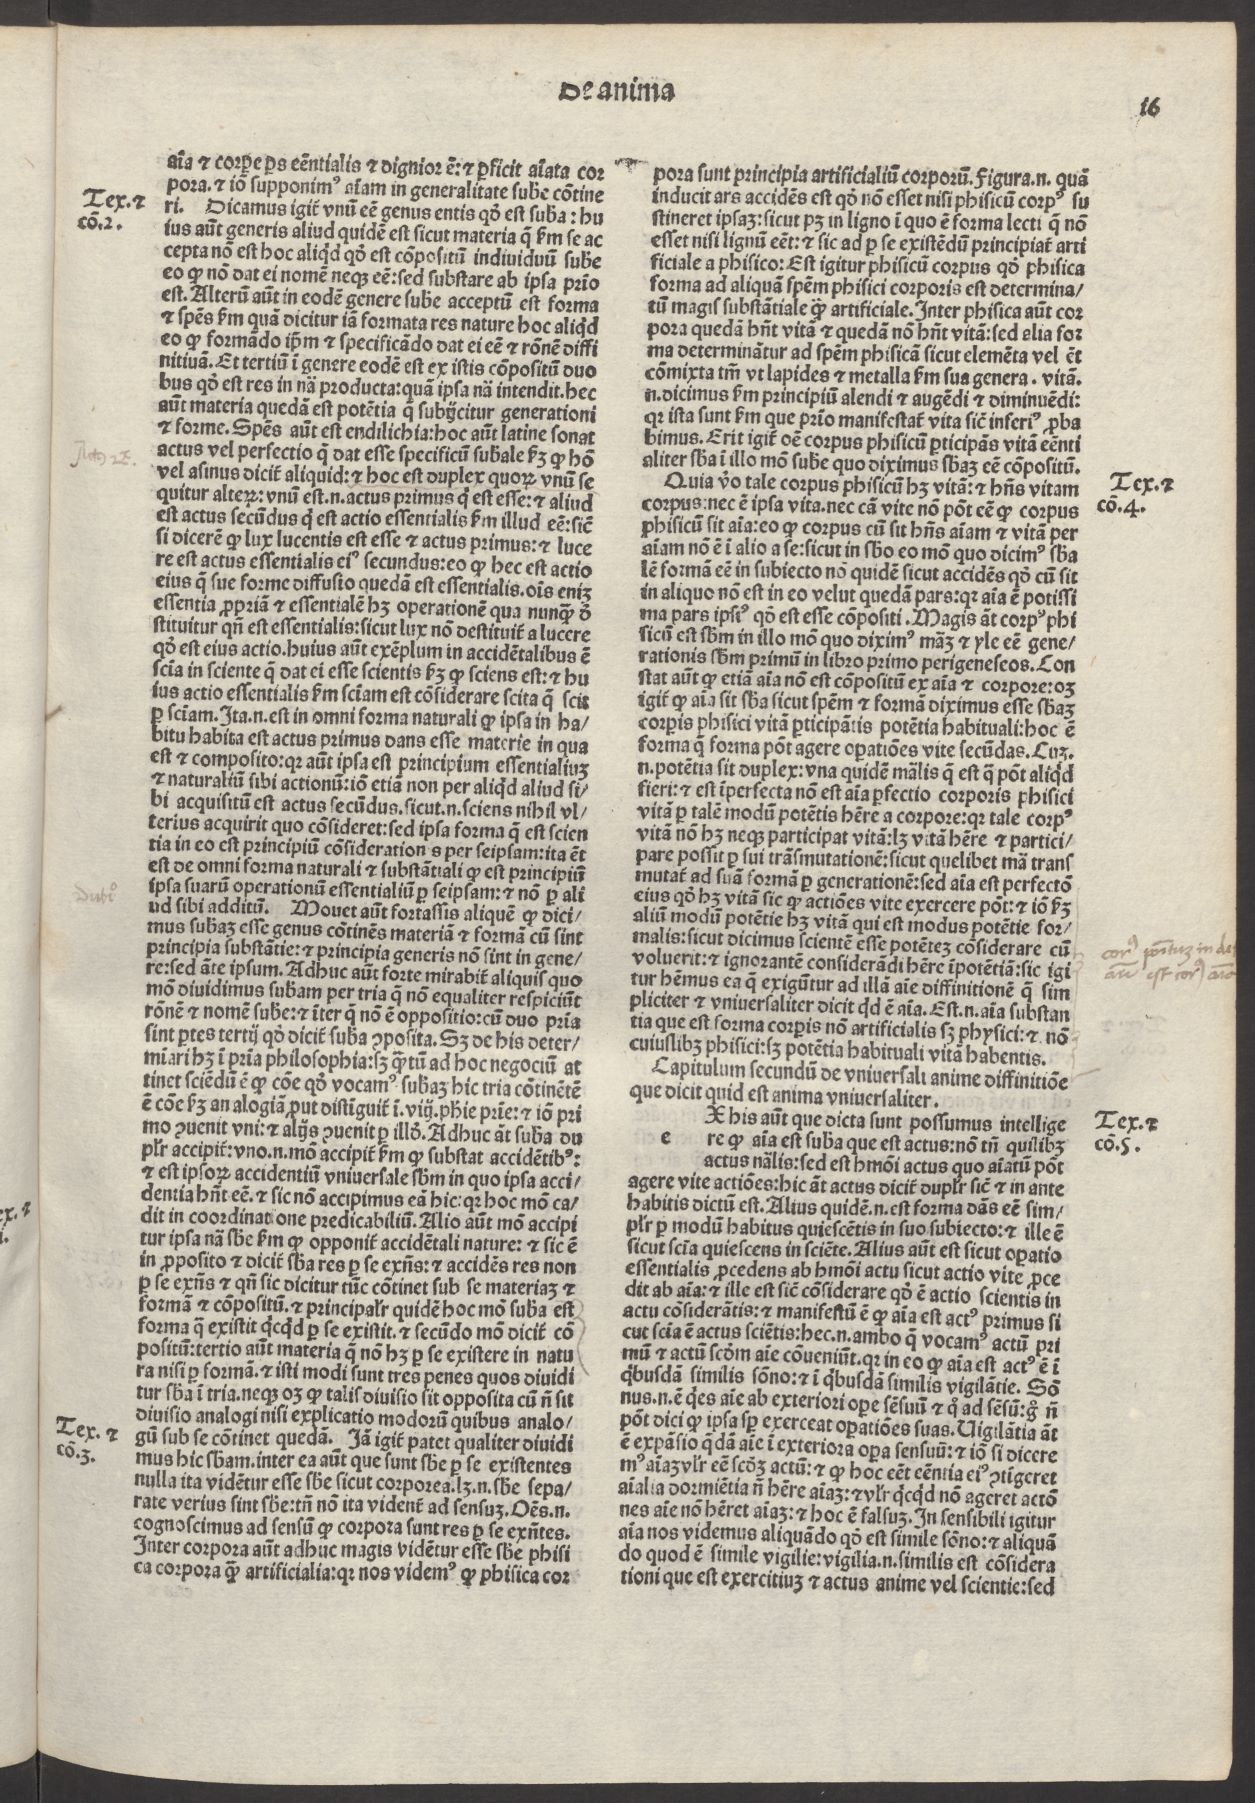 De anima
16
aīa ⁊ corpe ps eēntialis ⁊ dignior ē: ⁊ pficit aīata cor
pora. ⁊ iō supponimꝰ aīam in generalitate sube cōtine
Tex. ⁊
cō. 2.
ri. Dicamus igit᷑ vnū eē genus entis qđ est suba: hu
ius aūt generis aliud quidē est sicut materia q̄ km se ac
cepta nō est hoc aliqđ qđ est cōpositū individuū sube
eo ꝙ nō dat ei nomē neqꝫ eē: sed substare ab ipsa prīo
est. Alterū aūt in eodē genere sube acceptū est forma
⁊ spēs km quā dicitur iā formata res nature hoc aliqđ
eo ꝙ formādo ip̄m ⁊ specificādo dat ei eē ⁊ rōnē diffi
nitiuā. Et tertiū ī genere eodē est ex istis cōpositū duo
bus qđ est res in nā producta: quā ipsa nā intendit. hec
aūt materia quedā est potētia q̄ subijcitur generationi
⁊ forme. Spēs aūt est endilichia: hoc aūt latine sonat
actus vel perfectio q̄ dat esse specificū subale kꝫ ꝙ hō
vel asinus dicit᷑ aliquid: ⁊ hoc est duplex quoꝝ vnū se
quitur alteꝝ: vnū est.n. actus primus q̄ est esse: ⁊ aliud
est actus secūdus q̄ est actio essentialis km illud eē: sicē
si dicerē ꝙ lux lucentis est esse ⁊ actus primus: ⁊ luce
re est actus essentialis eiꝰ secundus: eo ꝙ hec est actio
eius q̄ sue forme diffusio quedā est essentialis. oīs eniꝫ
essentia ꝓpriā ⁊ essentialē hꝫ operationē qua nunqꝫ̄ đ
stituitur qn̄ est essentialis: sicut lux nō destituit᷑ a lucere
qđ est eius actio. huius aūt exēplum in accidētalibus ē
scīa in sciente q̄ dat ei esse scientis kꝫ ꝙ sciens est: ⁊ hu
ius actio essentialis km scīam est cōsiderare scita q̄ scit
ꝑ scīam. Ita.n. est in omni forma naturali ꝙ ipsa in ha/
bitu habita est actus primus dans esse materie in qua
est ⁊ composito: qꝛ aūt ipsa est principium essentialiuꝫ
⁊ naturaliū sibi actionū: iō etiā non per aliqđ aliud si/
bi acquisitū est actus secūdus. sicut.n. sciens nihil vl/
terius acquirit quo cōsideret: sed ipsa forma q̄ est scien
tia in eo est principiū cōsideration s per seipsam: ita ēt
est de omni forma naturali ⁊ substātiali ꝙ est principiū
ipsa suarū operationū essentialiū ꝑ seipsam: ⁊ nō ꝑ ali
Dubiº
ud sibi additū. Mouet aūt fortassis aliquē ꝙ dici/
mus subaꝫ esse genus cōtinēs materiā ⁊ formā cū sint
principia substātie: ⁊ principia generis nō sint in gene/
re: sed āte ipsum. Adhuc aūt forte mirabit᷑ aliquis quo
mō diuidimus subam per tria q̄ nō equaliter respiciūt
rōnē ⁊ nomē sube: ⁊ īter q̄ nō ē oppositio: cū duo prīa
sint ꝑtes tertij qđ dicit᷑ suba ꝯposita. Sꝫ de his deter/
mīari hꝫ ī prīa philosophia: sꝫ qꝫ̄tū ad hoc negociū at
tinet sciēdū ē ꝙ cōe qđ vocamꝰ subaꝫ hic tria cōtinētē
ē cōe kꝫ analogiā ꝓut distīguit᷑ ī. viij. phie prīe: ⁊ iō pri
mo ꝯuenit vni: ⁊ alijs ꝯuenit ꝑ illđ. Adhuc āt suba du
plr̄ accipit᷑: vno.n. mō accipit᷑ km ꝙ substat accidētibꝰ:
⁊ est ipsoꝝ accidentiū vniuersale sbm in quo ipsa acci/
dentia hn̄t eē. ⁊ sic nō accipimus eā hic: qꝛ hoc mō ca/
dit in coordinatione predicabiliū. Alio aūt mō accipi
tur ipsa nā sbe km ꝙ opponit᷑ accidētali nature: ⁊ sic ē
in ꝓposito ⁊ dicit᷑ sba res ꝑ se exn̄s: ⁊ accidēs res non
ꝑ se exn̄s ⁊ qn̄ sic dicitur tūc cōtinet sub se materiaꝫ ⁊
formā ⁊ cōpositū. ⁊ principalr̄ quidē hoc mō suba est
forma q̄ existit qcqđ ꝑ se existit. ⁊ secūdo mō dicit᷑ cō
positū: tertio aūt materia q̄ nō hꝫ ꝑ se existere in natu
ra nisi ꝑ formā. ⁊ isti modi sunt tres penes quos diuidi
tur sba ī tria. neqꝫ oꝫ ꝙ talis diuisio sit opposita cū n̄ sit
diuisio analogi nisi explicatio modorū quibus analo/
Tex. ⁊
cō. 3.
gū sub se cōtinet quedā. Jā igit᷑ patet qualiter diuidi
mus hic sbam. inter ea aūt que sunt sbe ꝑ se existentes
nulla ita vidētur esse sbe sicut corporea. lꝫ.n. sbe sepa/
rate verius sint sbe: tn̄ nō ita vident᷑ ad sensuꝫ. Oēs.n.
cognoscimus ad sensū ꝙ corpora sunt res ꝑ se exn̄tes.
Inter corpora aūt adhuc magis vidētur esse sbe phisi
ca corpora qꝫ̄ artificialia: qꝛ nos videmꝰ ꝙ phisica cor
pora sunt principia artificialiū corporū. Figura.n. quā
inducit ars accidēs est qđ nō esset nisi phisicū corpꝰ su
stineret ipsaꝫ: sicut pꝫ in ligno ī quo ē forma lecti q̄ nō
esset nisi lignū eēt: ⁊ sic ad ꝑ se existēdū principiat᷑ arti
ficiale a phisico: Est igitur phisicū corpus qđ phisica
forma ad aliquā spēm phisici corporis est determina/
tū magis substātiale qꝫ̄ artificiale. Inter phisica aūt cor
pora quedā hn̄t vitā ⁊ quedā nō hn̄t vitā: sed alia for
ma determinātur ad spēm phisicā sicut elemēta vel ēt
cōmixta tm̄ vt lapides ⁊ metalla km sua genera. vitā.
n. dicimus km principiū alendi ⁊ augēdi ⁊ diminuēdi:
qꝛ ista sunt km que prīo manifestat᷑ vita sic̄ inferiꝰ ꝓba
bimus. Erit igit᷑ oē corpus phisicū ꝑticipās vitā eēnti
aliter sba ī illo mō sube quo diximus sbaꝫ eē cōpositū.
Tex. ⁊
cō. 4.
Quia v̊o tale corpus phisicū hꝫ vitā: ⁊ hn̄s vitam
corpus: nec ē ipsa vita. nec cā vite nō pōt eē ꝙ corpus
phisicū sit aīa: eo ꝙ corpus cū sit hn̄s aīam ⁊ vitā per
aīam nō ē ī alio a se: sicut in sbo eo mō quo dicimꝰ sba
lē formā eē in subiecto nō quidē sicut accidēs qđ cū sit
in aliquo nō est in eo velut quedā pars: qꝛ aīa ē potissi
ma pars ipsiꝰ qđ est esse cōpositi. Magis āt corpꝰ phi
sicū est sbm in illo mō quo diximꝰ māꝫ ⁊ yle eē gene/
rationis sbm primū in libro primo perigeneseos. Con
stat aūt ꝙ etiā aīa nō est cōpositū ex aīa ⁊ corpore: oꝫ
igit᷑ ꝙ aīa sit sba sicut spēm ⁊ formā diximus esse sbaꝫ
corpis phisici vitā ꝑticipātis potētia habituali: hoc ē
forma q̄ forma pōt agere opatiōes vite secūdas. Cuꝫ.
n. potētia sit duplex: vna quidē mālis q̄ est q̄ pōt aliqđ
fieri: ⁊ est īperfecta nō est aīa ꝑfectio corporis phisici
vitā ꝑ talē modū potētis hēre a corpore: qꝛ tale corpꝰ
vitā nō hꝫ neqꝫ participat vitā: lꝫ vitā hēre ⁊ partici/
pare possit ꝑ sui trāsmutationē: sicut quelibet mā trans
mutat᷑ ad suā formā ꝑ generationē: sed aīa est perfectō
eius qđ hꝫ vitā sic ꝙ actiōes vite exercere pōt: ⁊ iō kꝫ
aliū modū potētie hꝫ vitā qui est modus potētie for/
malis: sicut dicimus scientē esse potēteꝫ cōsiderare cū
voluerit: ⁊ ignorantē considerādi hēre īpotētiā: sic igi
tur hēmus ea q̄ exigūtur ad illā aīe diffinitionē q̄ sim
pliciter ⁊ vniuersaliter dicit qđ ē aīa. Est.n. aīa substan
tia que est forma corpis nō artificialis sꝫ physici: ⁊ nō
cuiuslibꝫ phisici: sꝫ potētia habituali vitā habentis.
Capitulum secundū de vniuersali anime diffinitiōe
que dicit quid est anima vniuersaliter.
Tex. ⁊
cō. 5.
X his aūt que dicta sunt possumus intellige
e re ꝙ aīa est suba que est actus: nō tn̄ quilibꝫ
actus nālis: sed est hmōi actus quo aīatū pōt
agere vite actiōes: hic āt actus dicit᷑ duplr̄ sic̄ ⁊ in ante
habitis dictū est. Alius quidē.n. est forma dās eē sim/
plr̄ ꝑ modū habitus quiescētis in suo subiecto: ⁊ ille ē
sicut scīa quiescens in sciēte. Alius aūt est sicut opatio
essentialis ꝓcedens ab hmōi actu sicut actio vite ꝓce
dit ab aīa: ⁊ ille est sic̄ cōsiderare qđ ē actio scientis in
actu cōsiderātis: ⁊ manifestū ē ꝙ aīa est actꝰ primus si
cut scīa ē actus sciētis: hec.n. ambo q̄ vocamꝰ actū pri
mū ⁊ actū scđm aīe cōueniūt. qꝛ in eo ꝙ aīa est actꝰ ē ī
qbusdā similis sōno: ⁊ ī qbusdā similis vigilātie. Sō
nus.n. ē qes aīe ab exteriori ope sēsuū ⁊ qđ ad sēsū: g̊ n̄
pōt dici ꝙ ipsa sp exerceat opatiōes suas. Uigilātia āt
ē expāsio qdā aīe ī exteriora opa sensuū: ⁊ iō si dicere
mꝰ aīaꝫ vlr̄ eē scđꝫ actū: ⁊ ꝙ hoc eēt eēntia eiꝰ ꝯtīgeret
aīalia dormiētia n̄ hēre aīaꝫ: ⁊ vlr̄ qcqđ nō ageret actō
nes aīe nō hēret aīaꝫ: ⁊ hoc ē falsuꝫ. In sensibili igitur
aīa nos videmus aliquādo qđ est simile sōno: ⁊ aliquā
do quod ē simile vigilie: vigilia.n. similis est cōsidera
tioni que est exercitiuꝫ ⁊ actus anime vel scientie: sed